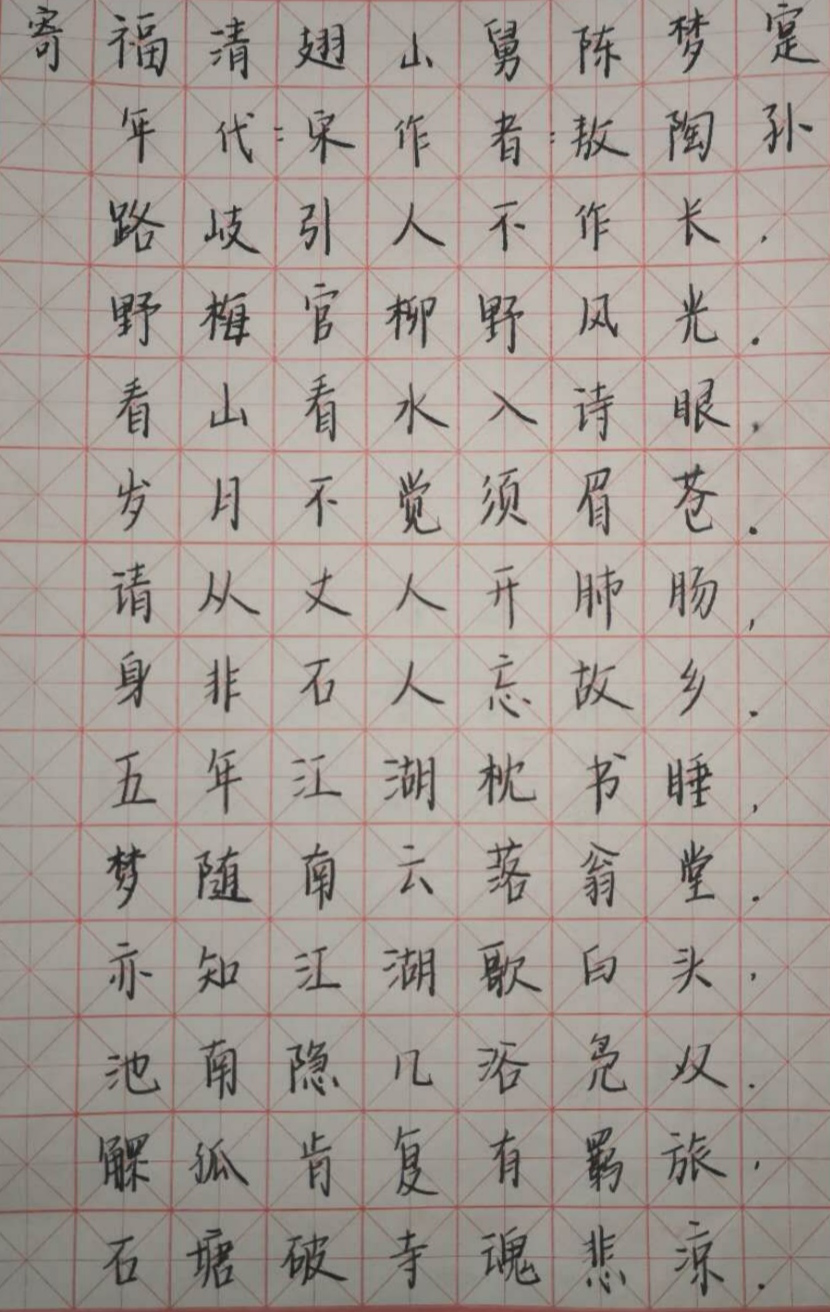 寄福清翅山舅陈梦寔
年代:宋作者:敖陶孙
路岐引人不作长,
野梅官柳野风光.
看山看水入诗眼,
岁月不觉须眉苍.
请从丈人开肺肠,
身非石人忘故乡.
五年江湖枕书睡,
梦随南云落翁堂.
亦知江湖歌白头,
池南隐几浴凫双.
觯狐肯复有羁旅,
石塘破寺魂悲凉.